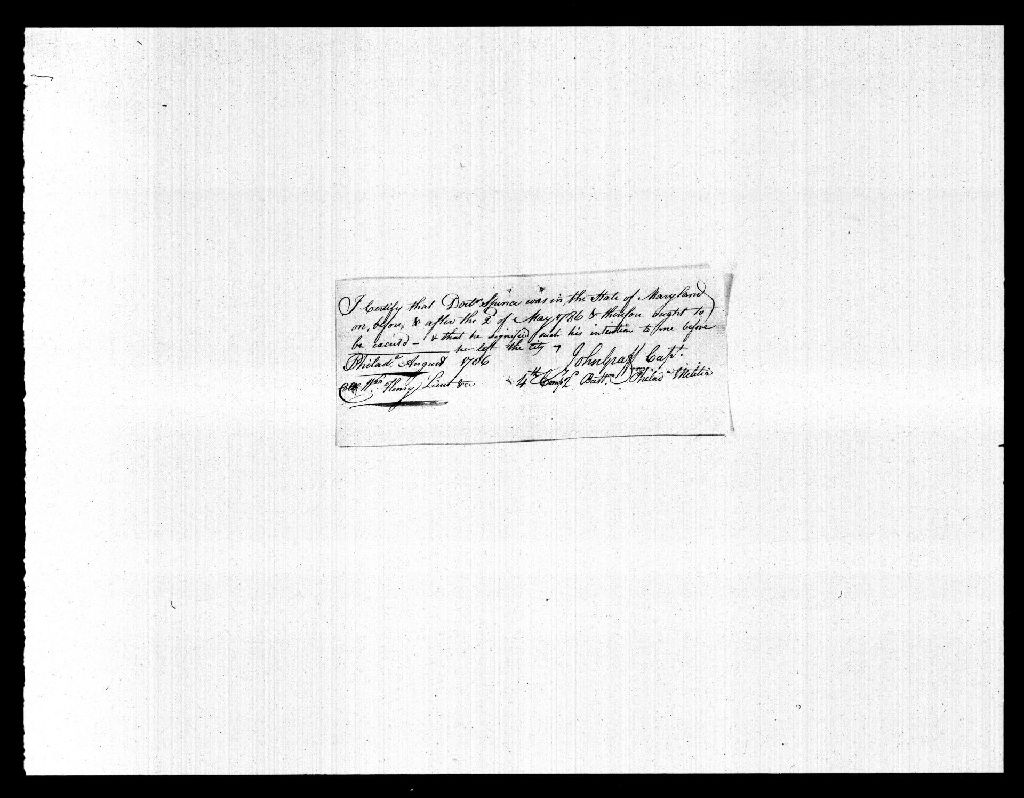 I Certify that Doctr Spence was in the State of Maryland
on, before, & after the 2d of May 1786 & therefore ought to
be excus'd — & that he signified such his intention to me before
he left the City
Philada August 1786
John Graff Capt.
Wm Henry Lieut &c.
4th Compy Battn Philada Militia